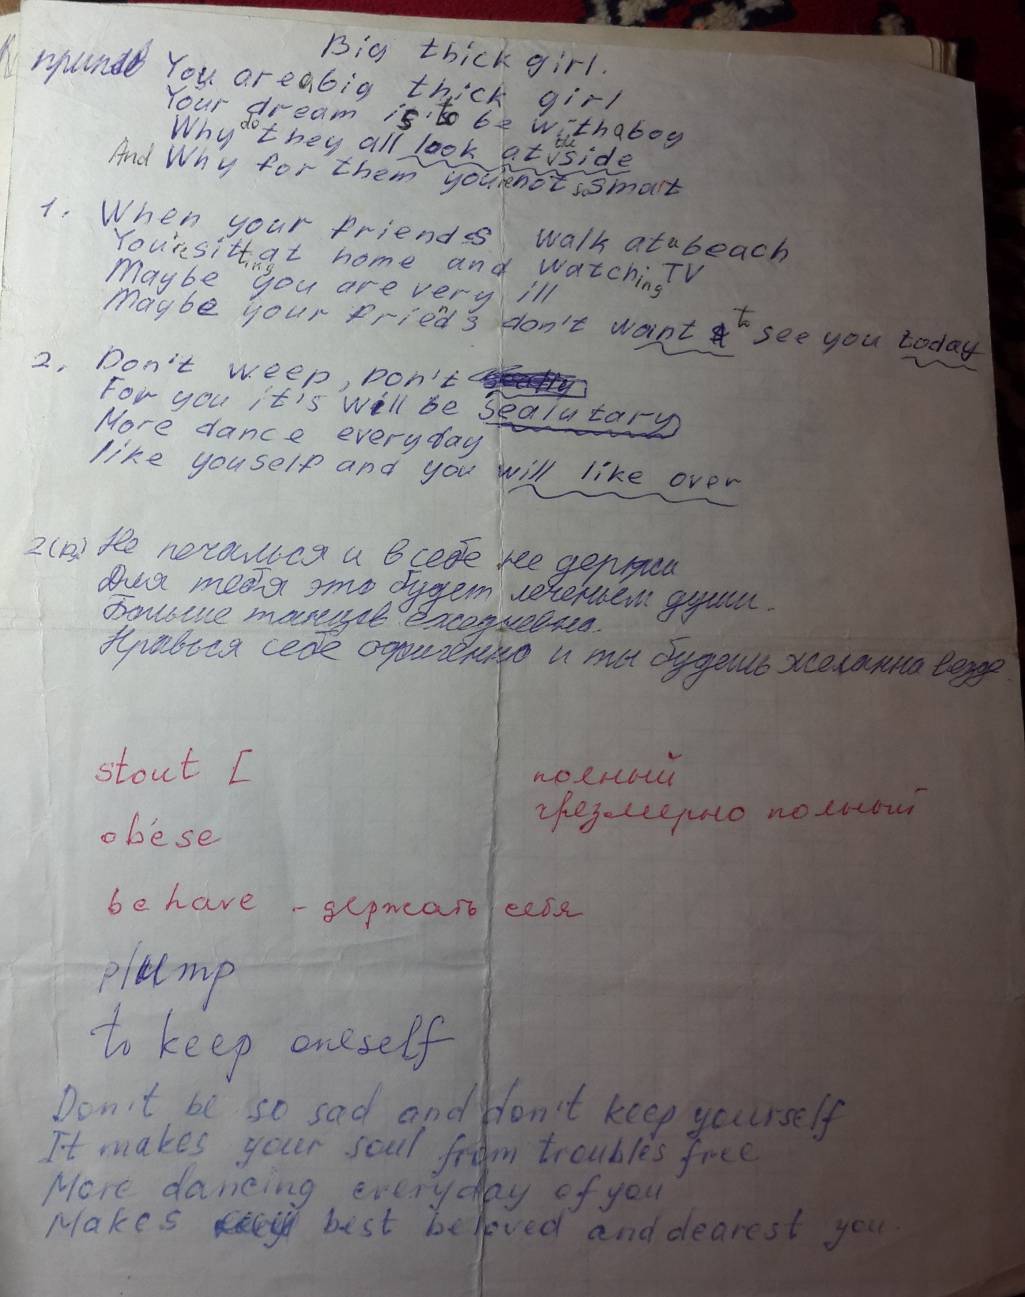 Big thick girl.
припев You are a big thick girl
Your dream is to be with a boy
Why do they all look at the side
And Why for them you're not so smart
1. When your friends walk at a beach
You're sitting at home and watching TV
Maybe you are very ill
Maybe your friends don't want to see you today
2. Don't weep, Don't
For you it's will be sealutary
More dance everyday
like youself and you will like over
2(п) Не печалься и в себе не держи
Для тебя это будет леченьем души.
Больше танцев ежедневно.
Нравься себе офигенно и ты будешь желанна везде.
stout [ полный
чрезмерно полный
obese
behave - держать себя
plump
to keep oneself
Don't be so sad and don't keep yourself
It makes your soul from troubles free
More dancing everyday of you
Makes best beloved and dearest you.